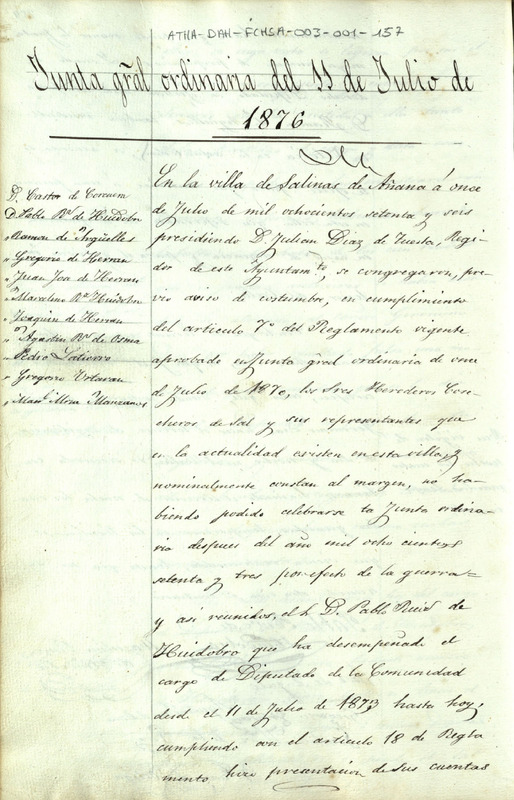 ATHA-DAH-FCHSA-003-001-157
Junta gral ordinaria del 11 de Julio de
1876
D. Castor de
D Pablo Rz. de Huidobro
" Ramon de Argüelles
" Gregorio de Herran
" Juan Joa de Herran
" Marcelino Rz Huidobro
" Joaquin de Herran
" Agustin Rz. de Osma
" Pedro Latiorro
" Gregorio Urtaran
" Manl. Mrza Manzanos
En la villa de Salinas de Añana á once
de Julio de mil ochocientos setenta y seis
presidiendo D. Julian Diaz de Tuesta, Regi-
dor de este Ayuntamto, se congregaron, pre-
vio aviso de costumbre, en cumplimiento
del articulo 7º del Reglamento vigente
aprobado en Junta gral ordinaria de once
de Julio de 1870, los Sres Herederos Cose-
cheros de Sal y sus representantes que
en la actualidad existen en esta villa, y
nominalmente constan al margen, no ha-
biendo podido celebrarse la Junta ordina-
ria despues del año mil ocho cientos
setenta y tres por efecto de la guerra=
y asi reunidos, el Sr. D. Pablo Ruiz de
Huidobro que ha desempeñado el
cargo de Diputado de la Comunidad
desde el 11 de Julio de 1873 hasta hoy,
cumpliendo con el articulo 18 de Regla
mento hizo presentacion de sus cuentas